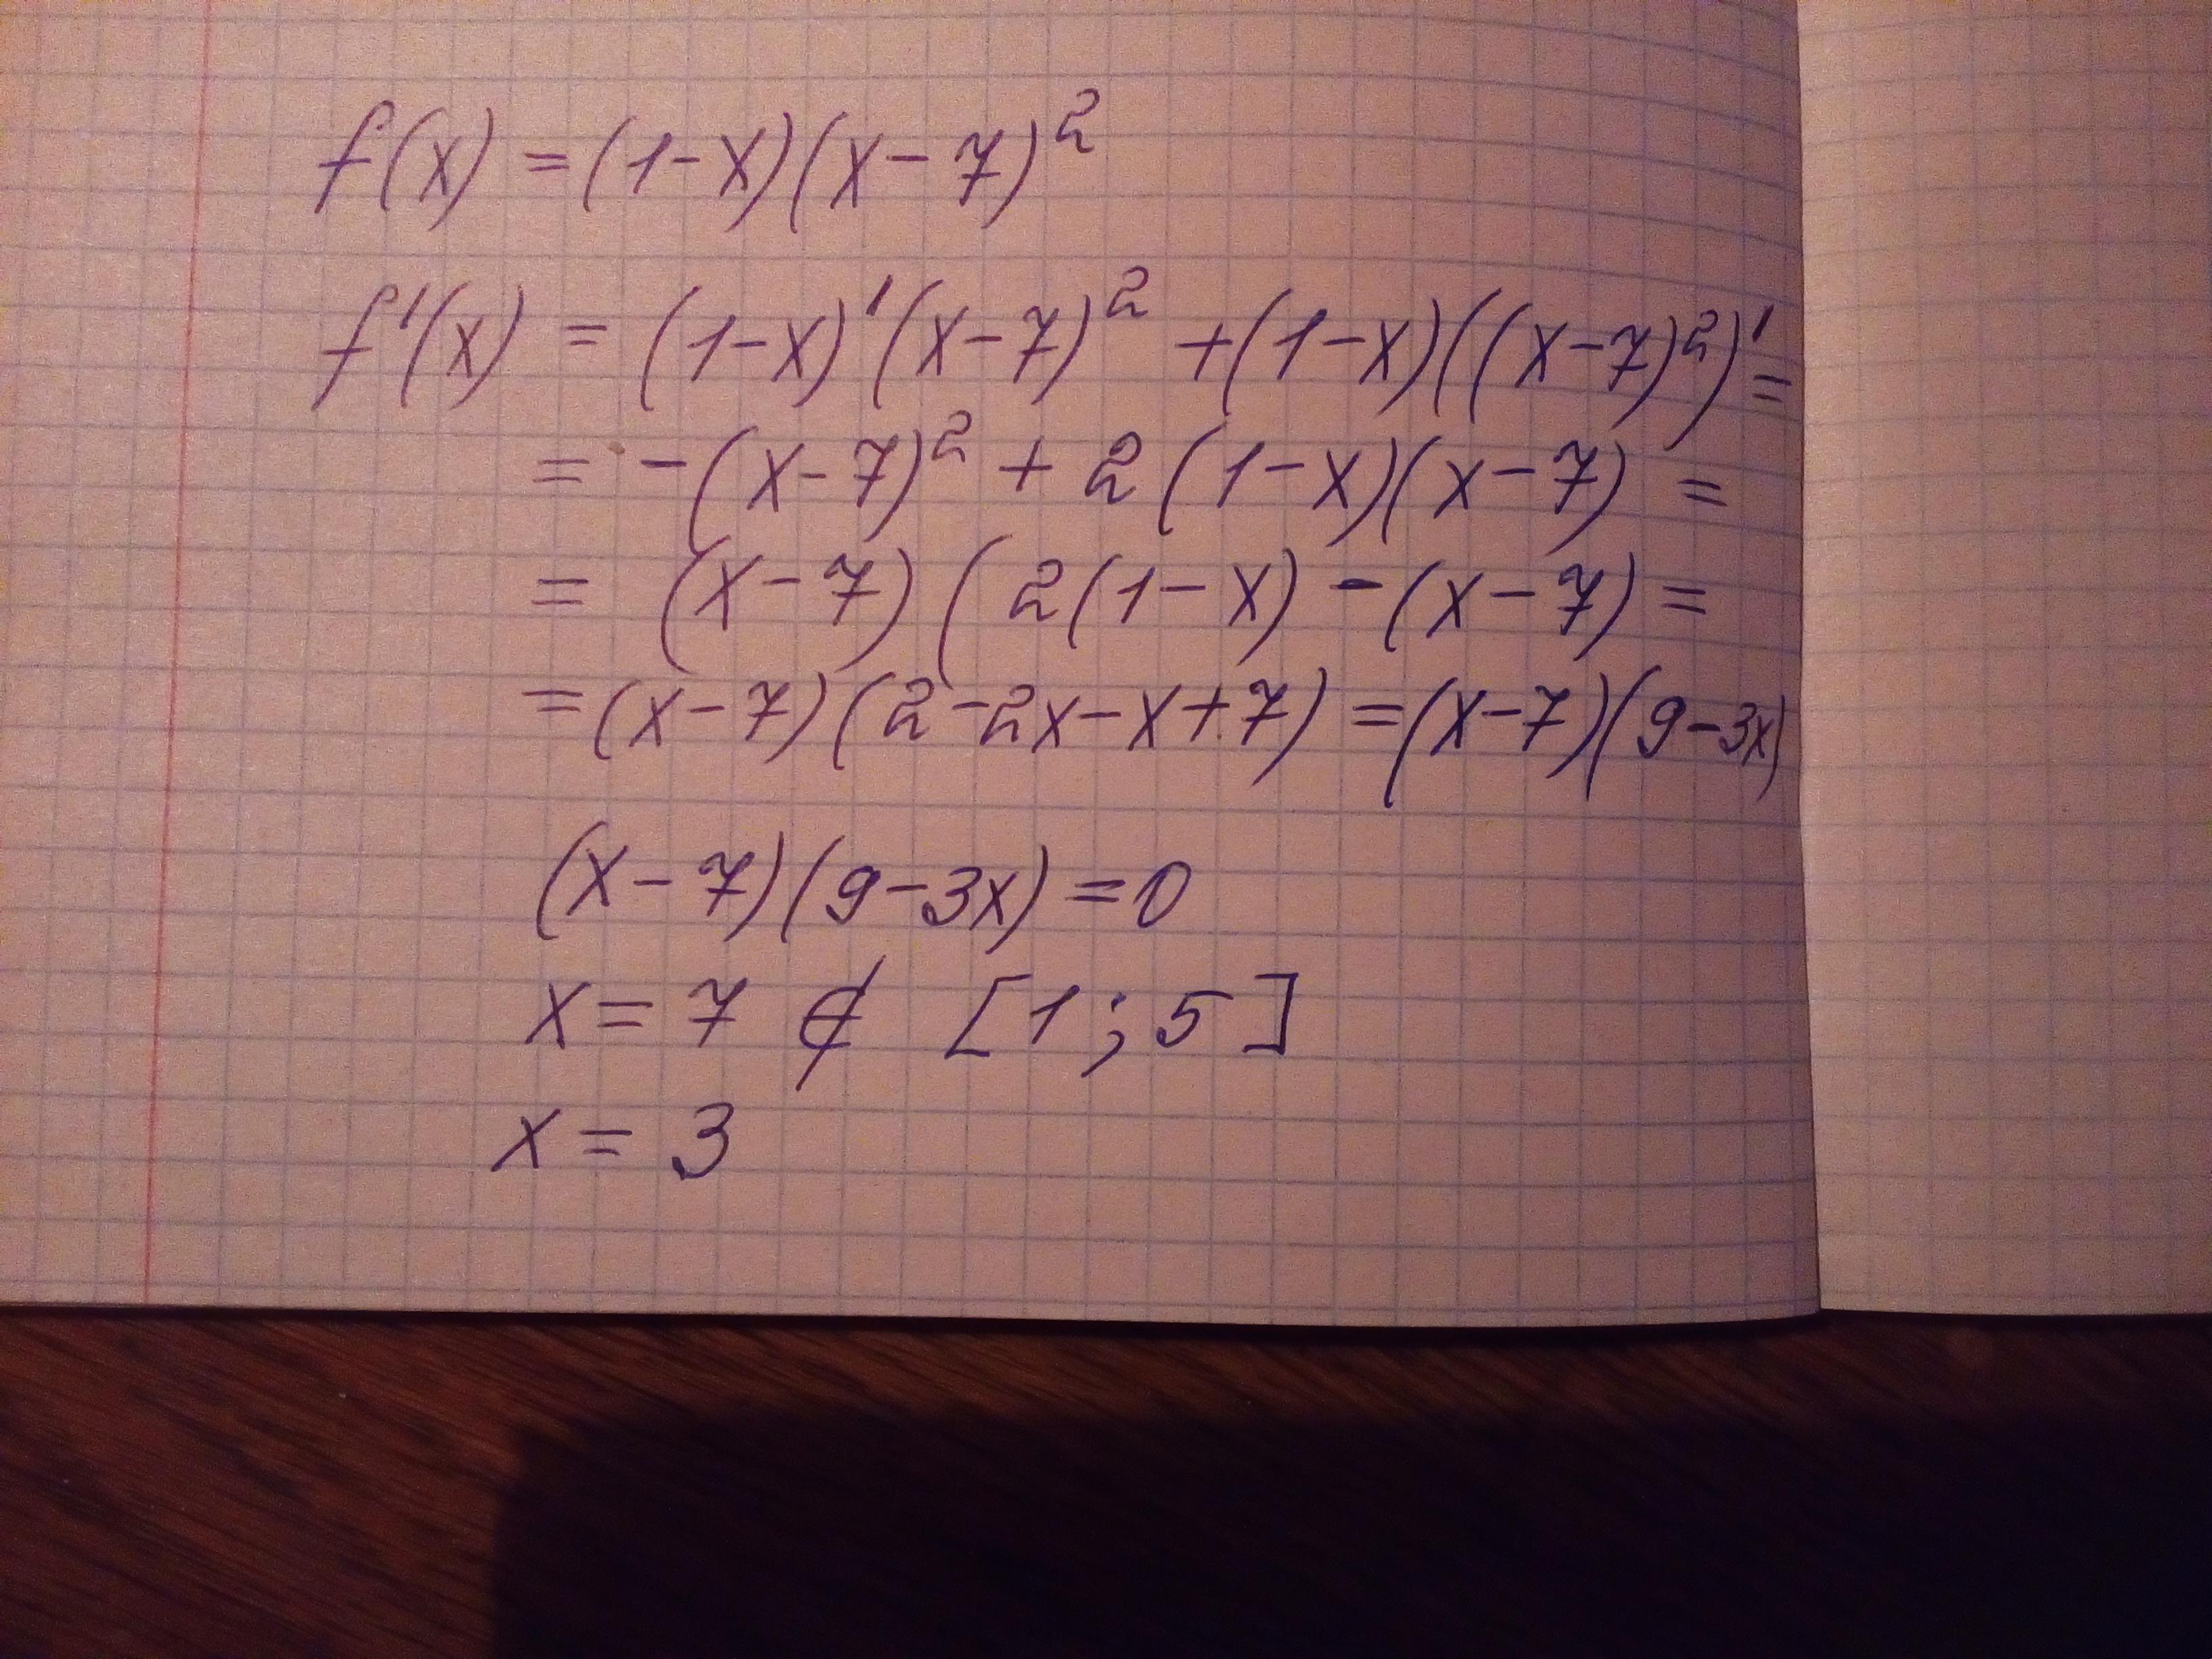 f(x) = (1-x)(x-7)²
f'(x) = (1-x)'(x-7)² +(1-x)((x-7)²)' =
= -(x-7)² + 2(1-x)(x-7) =
= (x-7)(2(1-x) -(x-7) =
=(x-7)(2-2x-x+7) =(x-7)(9-3x)
(x-7)(9-3x) =0
x = 7 ∉ [1;5]
x = 3